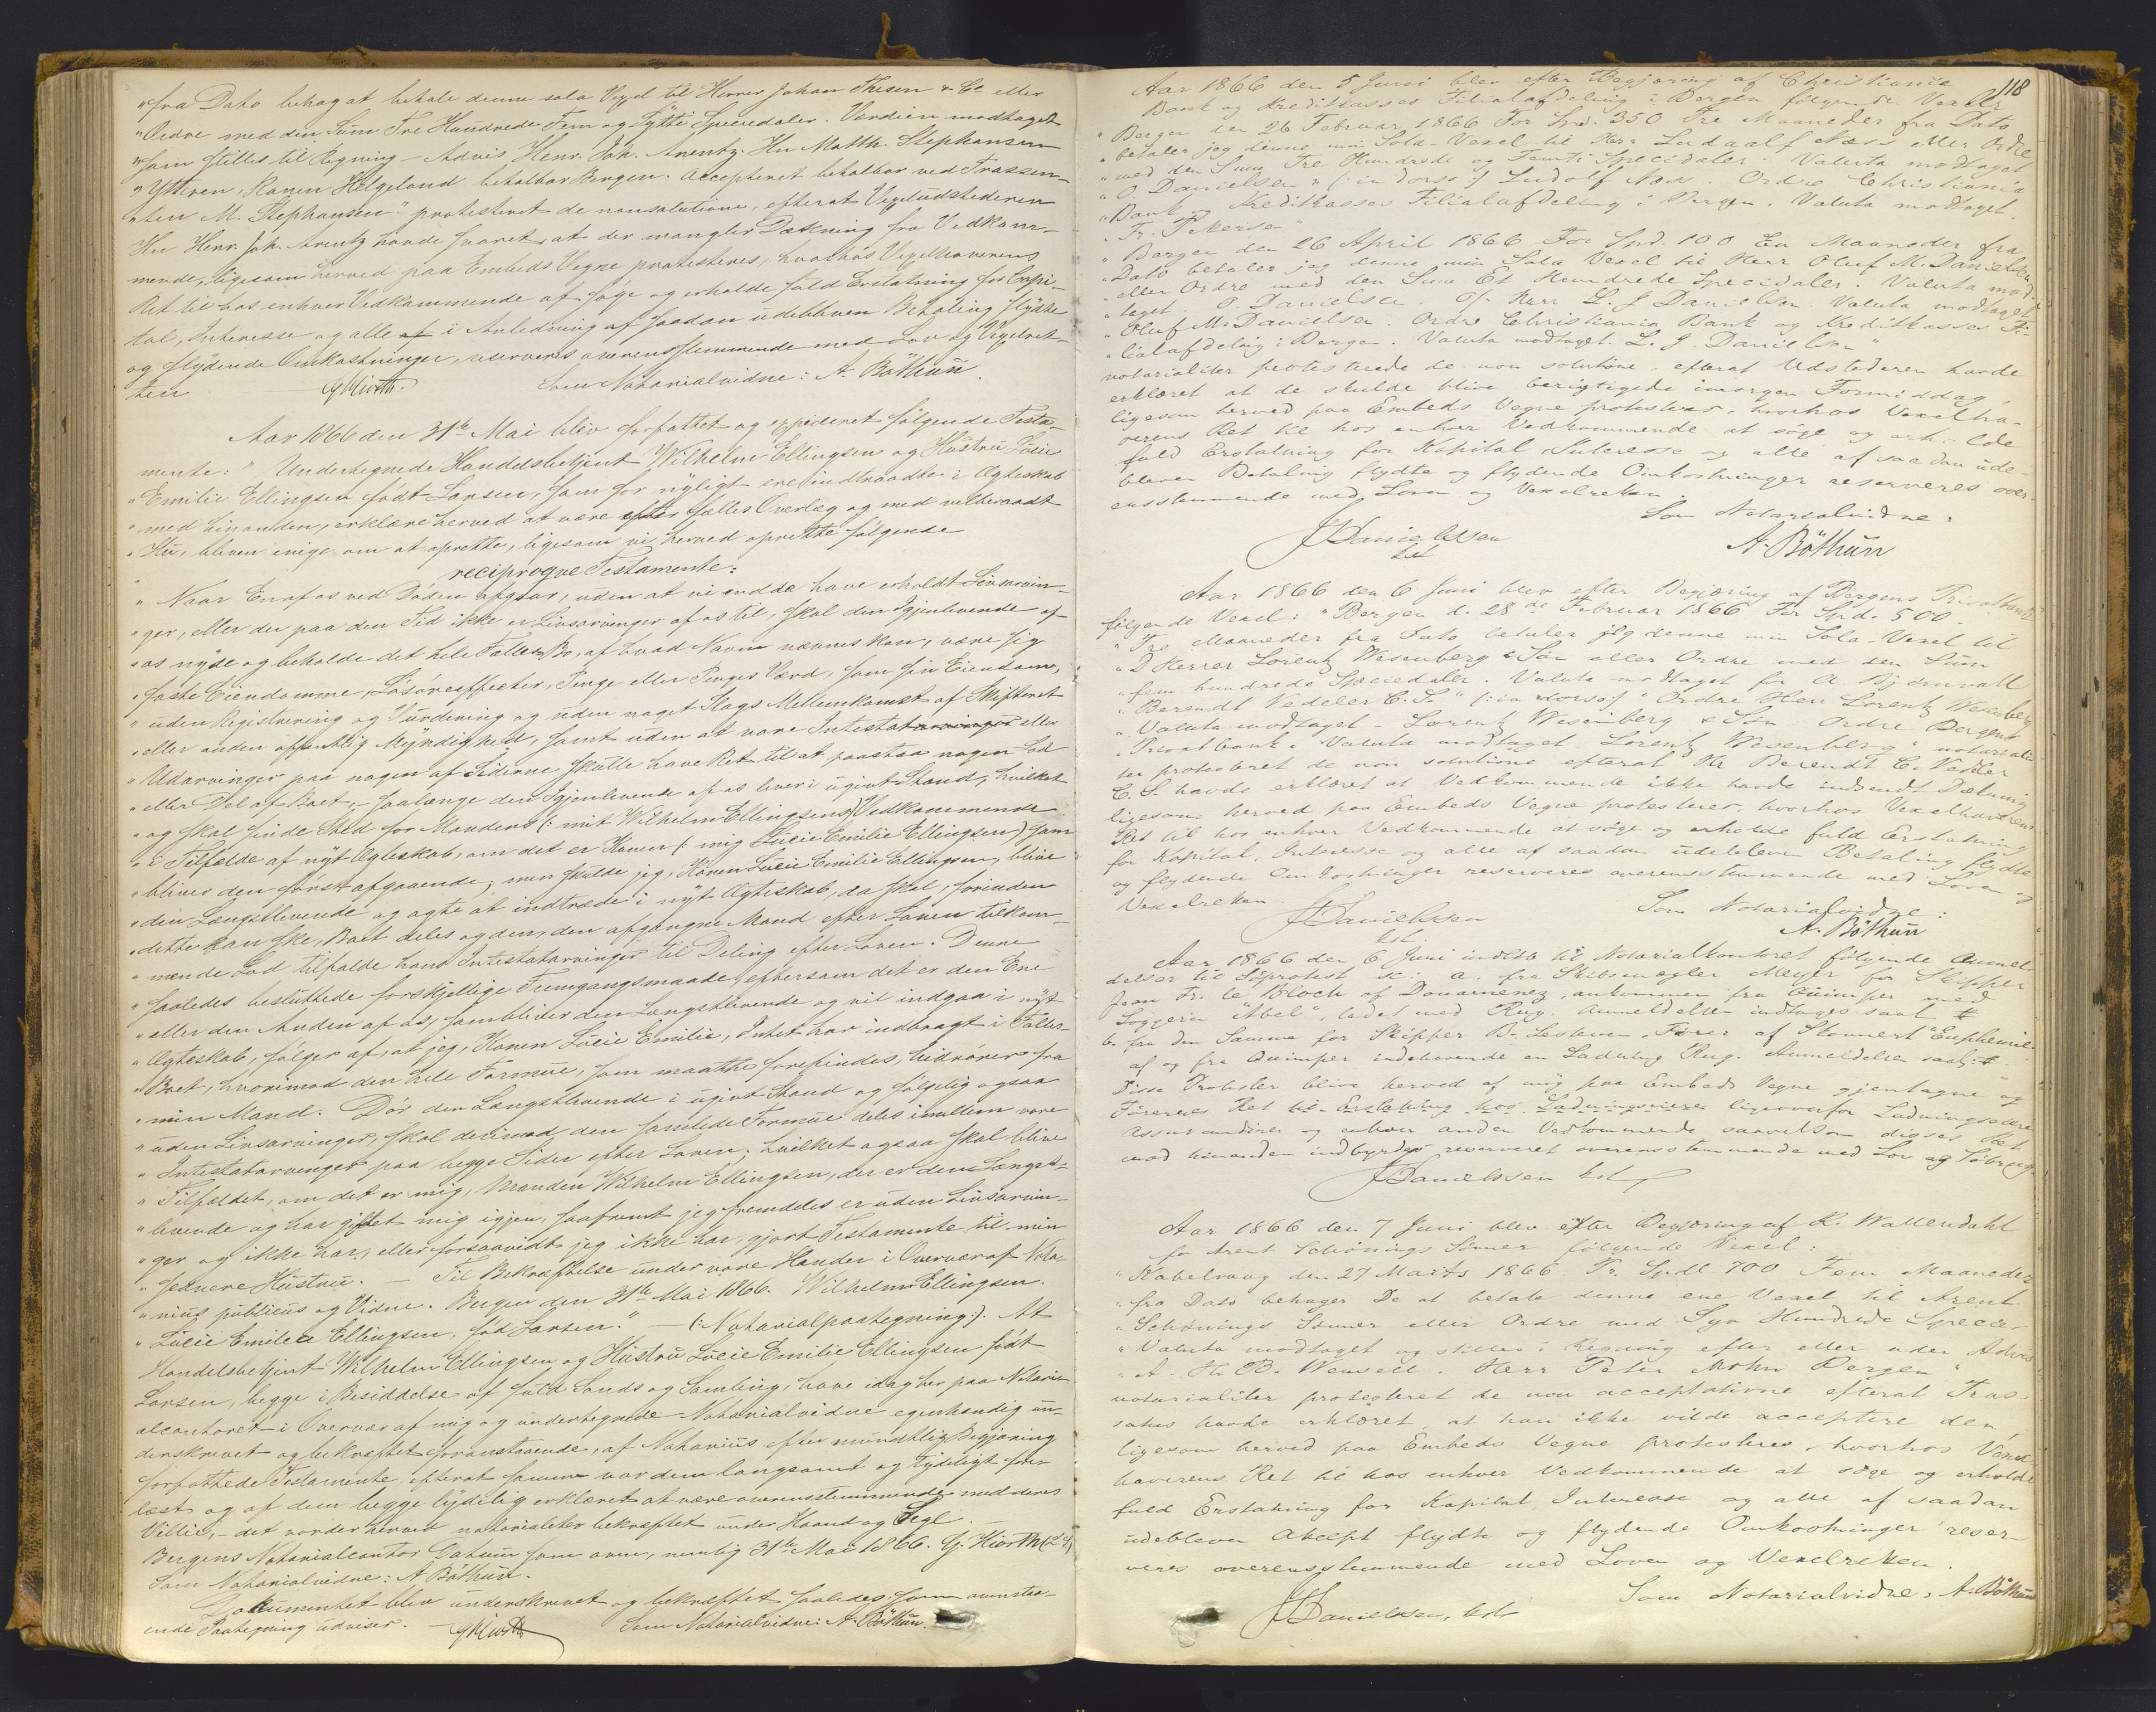 "fra Dato behag at betale denne sola Vexel til Herrer Johan Thesen & Co eller
"Ordre med den Sum Tre Hundrede Fem og Fÿtti Speciedaler. Værdien modtaget
"som stilles til Regning - Advis Henr. Joh. Arentz. Hr Matth. Stephansen
"Ytteren, Ranen Helgeland betalbar Bergen. Accepteret betalbar ved Trassen-
"ten M. Stephansen." protesteret de nonsolutione, efterat Vexeludstederen
Hr Henr. Joh. Arentz havde svaret, at der mangler Dækning fra Vedkom-
mende, ligesom herved paa Embeds Vegne protesteres, hvorhos Vexelhaverens
Ret til hos enhver Vedkommende at søge og erholde fuld Erstatning for Capi-
tal, Interesse og alle af i Anledning af saadan udebleven Betaling flÿdte
og flÿdende Omkostninger, reserveres overensstemmende med Lov og Vexelret-
ten
G Hiorth.
Som Notarialvidne: A. Böthun.
Aar 1866 den 31te Mai blev forfattet og expederet følgende Testa-
mente: " Undertegnede Handelsbetjent Wilhelm Ellingsen og Hustru Lucie
"Emilie Ellingsen født Larsen, som for nÿligt ere indtraadte i Ægteskab
"med hinanden, erklære herved at være efter fælles Overlæg og med velberaadt
"Hu, bleven enige om at oprette, ligesom vi herved oprette følgende
reciproque Testamente:
" Naar En af os ved Døden afgaar, uden at vi endda have erholdt Livsarvin-
"ger, eller der paa den Tid ikke er Livsarvinger af os til, skal den Igjenlevende af
"os nÿde og beholde det hele Fælles Bo, af hvad Navn nævnes kan, være sig
"faste Eiendomme, Løsøreeffecter, Penge eller Penges Værd, som sin Eiendom,
"uden Registrering og Vurdering og uden noget Slags Mellemkomst af Skifteret
"eller anden offentlig Mÿndighed, samt uden at vore Intestatarvinger eller
"Udarvinger paa nogen af Siderne skulle have Ret til at paastaa nogen Lod
"eller Del af Boet, - saalænge den Igjenlevende af os lever i ugivt Stand, hvilket
"og skal finde Sted for Mandens (: mit Wilhelm Ellingsens) Vedkommende
"i Tilfælde af nÿt Ægteskab, om det er Konen (: mig Lucie Emilie Ellingsen) som
"bliver den først afgaaende; men skulde jeg, Konen Lucie Emilie Ellingsen, blive
"den Længstlevende og agte at indtræde i nÿt Ægteskab, da skal, forinden
"dette kan ske, Boet deles og den, den afgangne Mand efter Loven tilkom-
"mende Lod tilfalde hans Intestatarvinger til Deling efter Loven. Denne
"saaledes besluttede forskjellige Fremgangsmaade, eftersom det er den Ene
"eller den Anden af os, som bliver den Længstlevende og vil indgaa i nÿt
"Ægteskab, følger af, at jeg, Konen Lucie Emilie, Intet har indbragt i Fælles-
"Boet, hvorimod den hele Formue, som maatte forefindes, hidrører fra
"min Mand. Dør den Længstlevende i ugivt Stand og følgelig ogsaa
"uden Livsarvinger, skal derimod den samlede Formue deles imellem vore
"Intestatarvinger paa begge Sider efter Loven; hvilket ogsaa skal blive
"Tilfældet, om det er mig, Manden Wilhelm Ellingsen, der er den Længst-
"levende og har giftet mig igjen, saafremt jeg fremdeles er uden Livsarvin-
"ger og ikke har, eller forsaavidt jeg ikke har, gjort Testamente til min
"senere Hustru. — Til Bekræftelse under vore Hænder i Overvær af Nota-
"rius publicus og Vidne. Bergen den 31te Mai 1866. Wilhelm Ellingsen.
"Lucie Emilie Ellingsen, fød Larsen." — (: Notarialpaategning:). At
Handelsbetjent Wilhelm Ellingsen og Hustru Lucie Emilie Ellingsen født
Larsen, begge i Besiddelse af fuld Sands og Samling, have idag her paa Notari-
alcontoret i Overvær af mig og undertegnede Notarialvidne egenhændig un-
derskrevet og bekræftet foranstaaende, af Notarius efter mundtlig Begjæring
forfattede Testamente, efterat samme var dem langsomt og tÿdeligt fore-
læst og af dem begge tÿdelig erklæret at være overensstemmende med deres
Villie, - det vorder herved notarialiter bekræftet under Haand og Segl. —
Bergens Notarialcontor Datum som oven, nemlig 31te Mai 1866. G. Hiorth (L.S.)
Som Notarialvidne: A Böthun.
Dokumentet blev underskrevet og bekræftet saaledes som ovensta-
ende Paategning udviser.
G Hiorth
Som Notarialvidne: A. Böthun.
118
Aar 1866 den 5 Juni blev efter Begjæring af Christiania
Bank og Kreditkasses Filialafdeling i Bergen følgende Vexler
"Bergen den 26 Februar 1866 For Spd. 350 Tre Maaneder fra Dato
"betaler jeg denne min Sola-Vexel til Herr Ludaalf Næss eller Ordre
"med den Sum Tre Hundrede og Femti Speciedaler. Valuta modtaget
"O Danielsen" (: in dorso:) Ludolf Næss. Ordre Christiania
"Bank og Kreditkasses Filialafdeling i Bergen. Valuta modtaget.
"Bergen den 26 April 1866 For Spd. 100 En Maaneder fra
"Dato betaler jeg denne min Sola Vexel til Herr Oluf M. Danielsen
"eller Ordre med den Sum Et Hundrede Speciedaler. Valuta mod-
"taget. O. Danielsen. Herr L. J Danielsen Valuta modtaget
"Oluf M. Danielsen. Ordre Christiania Bank og Kreditkasses Fi-
"lialafdeling i Bergen. Valuta modtaget. L. J. Danielsen"
notarialiter protesterede de non solutione, efterat Udstederen havde
erklæret at de skulde blive berigtigede imorgen Formiddag,
ligesom herved paa Embeds Vegne protesteres, hvorhos Vexelha-
verens Ret til hos enhver Vedkommende at søge og erholde
fuld Erstatning for Kapital, Interesse og alle af saadan ude-
bleven Betaling flydte og flydende Omkostninger reserveres over-
ensstemmende med Loven og Vexelretten.
Som Notarialvidne:
J Danielssen
cst
A. Böthun
Aar 1866 den 6 Juni blev efter Begjæring af Bergens Privatbank
følgende Vexel: "Bergen d. 28de Februar 1866 For Spd. 500.
"Tre Maaneder fra Dato betaler jeg denne min Sola-Vexel til
"D Herrer Lorentz Wesenberg & Søn eller Ordre med den Sum
"fem hundrede Speciedaler. Valuta modtaget fr A. Bjørnvall
"Berendt Vedeler C. S." (: in dorso:) "Ordre Herr Lorentz Wesenberg
"Valuta modtaget - Lorentz Wesenberg & Søn. Ordre Bergens
"Privatbank. Valuta modtaget Lorentz Wesenberg" notariali-
ter protesteret de non solutione efterat Hr Berendt C. Vedeler
C. S. havde erklæret at Vedkommende ikke havde indsendt Dækning
ligesom herved paa Embeds Vegne protesteres, hvorhos Vexelhaverens
Ret til hos enhver Vedkommende at søge og erholde fuld Erstatning
for Kapital, Interesse og alle af saadan udebleven Betaling flydte
og flydende Omkostninger reserveres overensstemmende med Loven og
Vexelretten.
Som Notarialvidne:
J Danielssen
cst.
A. Böthun
Aar 1866 den 6 Juni indløb til Notarialkontoret følgende Anmel-
delser til Søprotest: a. fra Skibsmægler Meyer for Skipper
Jean Fr. le Bloch af Douarnenez, ankommen fra Quimper med
Loggeren "Abel", ladet med Rug. Anmeldelsen indtoges saal.
b. fra den Samme for Skipper B. Lesteven, Fører af "Euphemie"
af og fra Quimper indehavende en Ladning Rug. Anmeldelsen saal:
Disse Protester blive herved af mig paa Embeds Vegne gjentagne og
Førernes Ret til Erstatning hos Ladningseiere ligeoverfor Ladningseiere
Assurandører og enhver anden Vedkommende saavelsom disses Ret
mod hinanden indbyrdes reserveret overensstemmende med Lov og Søbrug.
J Danielssen cst
Aar 1866 den 7 Juni blev efter Begjæring af K. Wallendahl
for Arent Schønings Sønner følgende Vexel:
"Kabelvaag den 27 Marts 1866 Pr. Spdl 700 Fem Maaneder
"fra Dato behager De at betale denne ene Vexel til Arent
"Schønings Sønner eller Ordre med Syv Hundrede Specie-
"Valuta modtaget og stilles i Regning efter eller uden Advis
"A. H. B. Wensell. Herr Peter Mohn Bergen"
notarialiter protesteret de non acceptatione efterat Tras-
satus havde erklæret at han ikke vilde acceptere den,
ligesom herved paa Embeds Vegne protesteres, hvorhos Vexel-
haverens Ret til hos enhver Vedkommende at søge og erholde
fuld Erstatning for Kapital, Interesse og alle af saadan
udebleven Accept flydte og flydende Omkostninger reser-
veres overensstemmende med Loven og Vexelretten.
J Danielssen, cst
Som Notarialvidne, A. Böthun